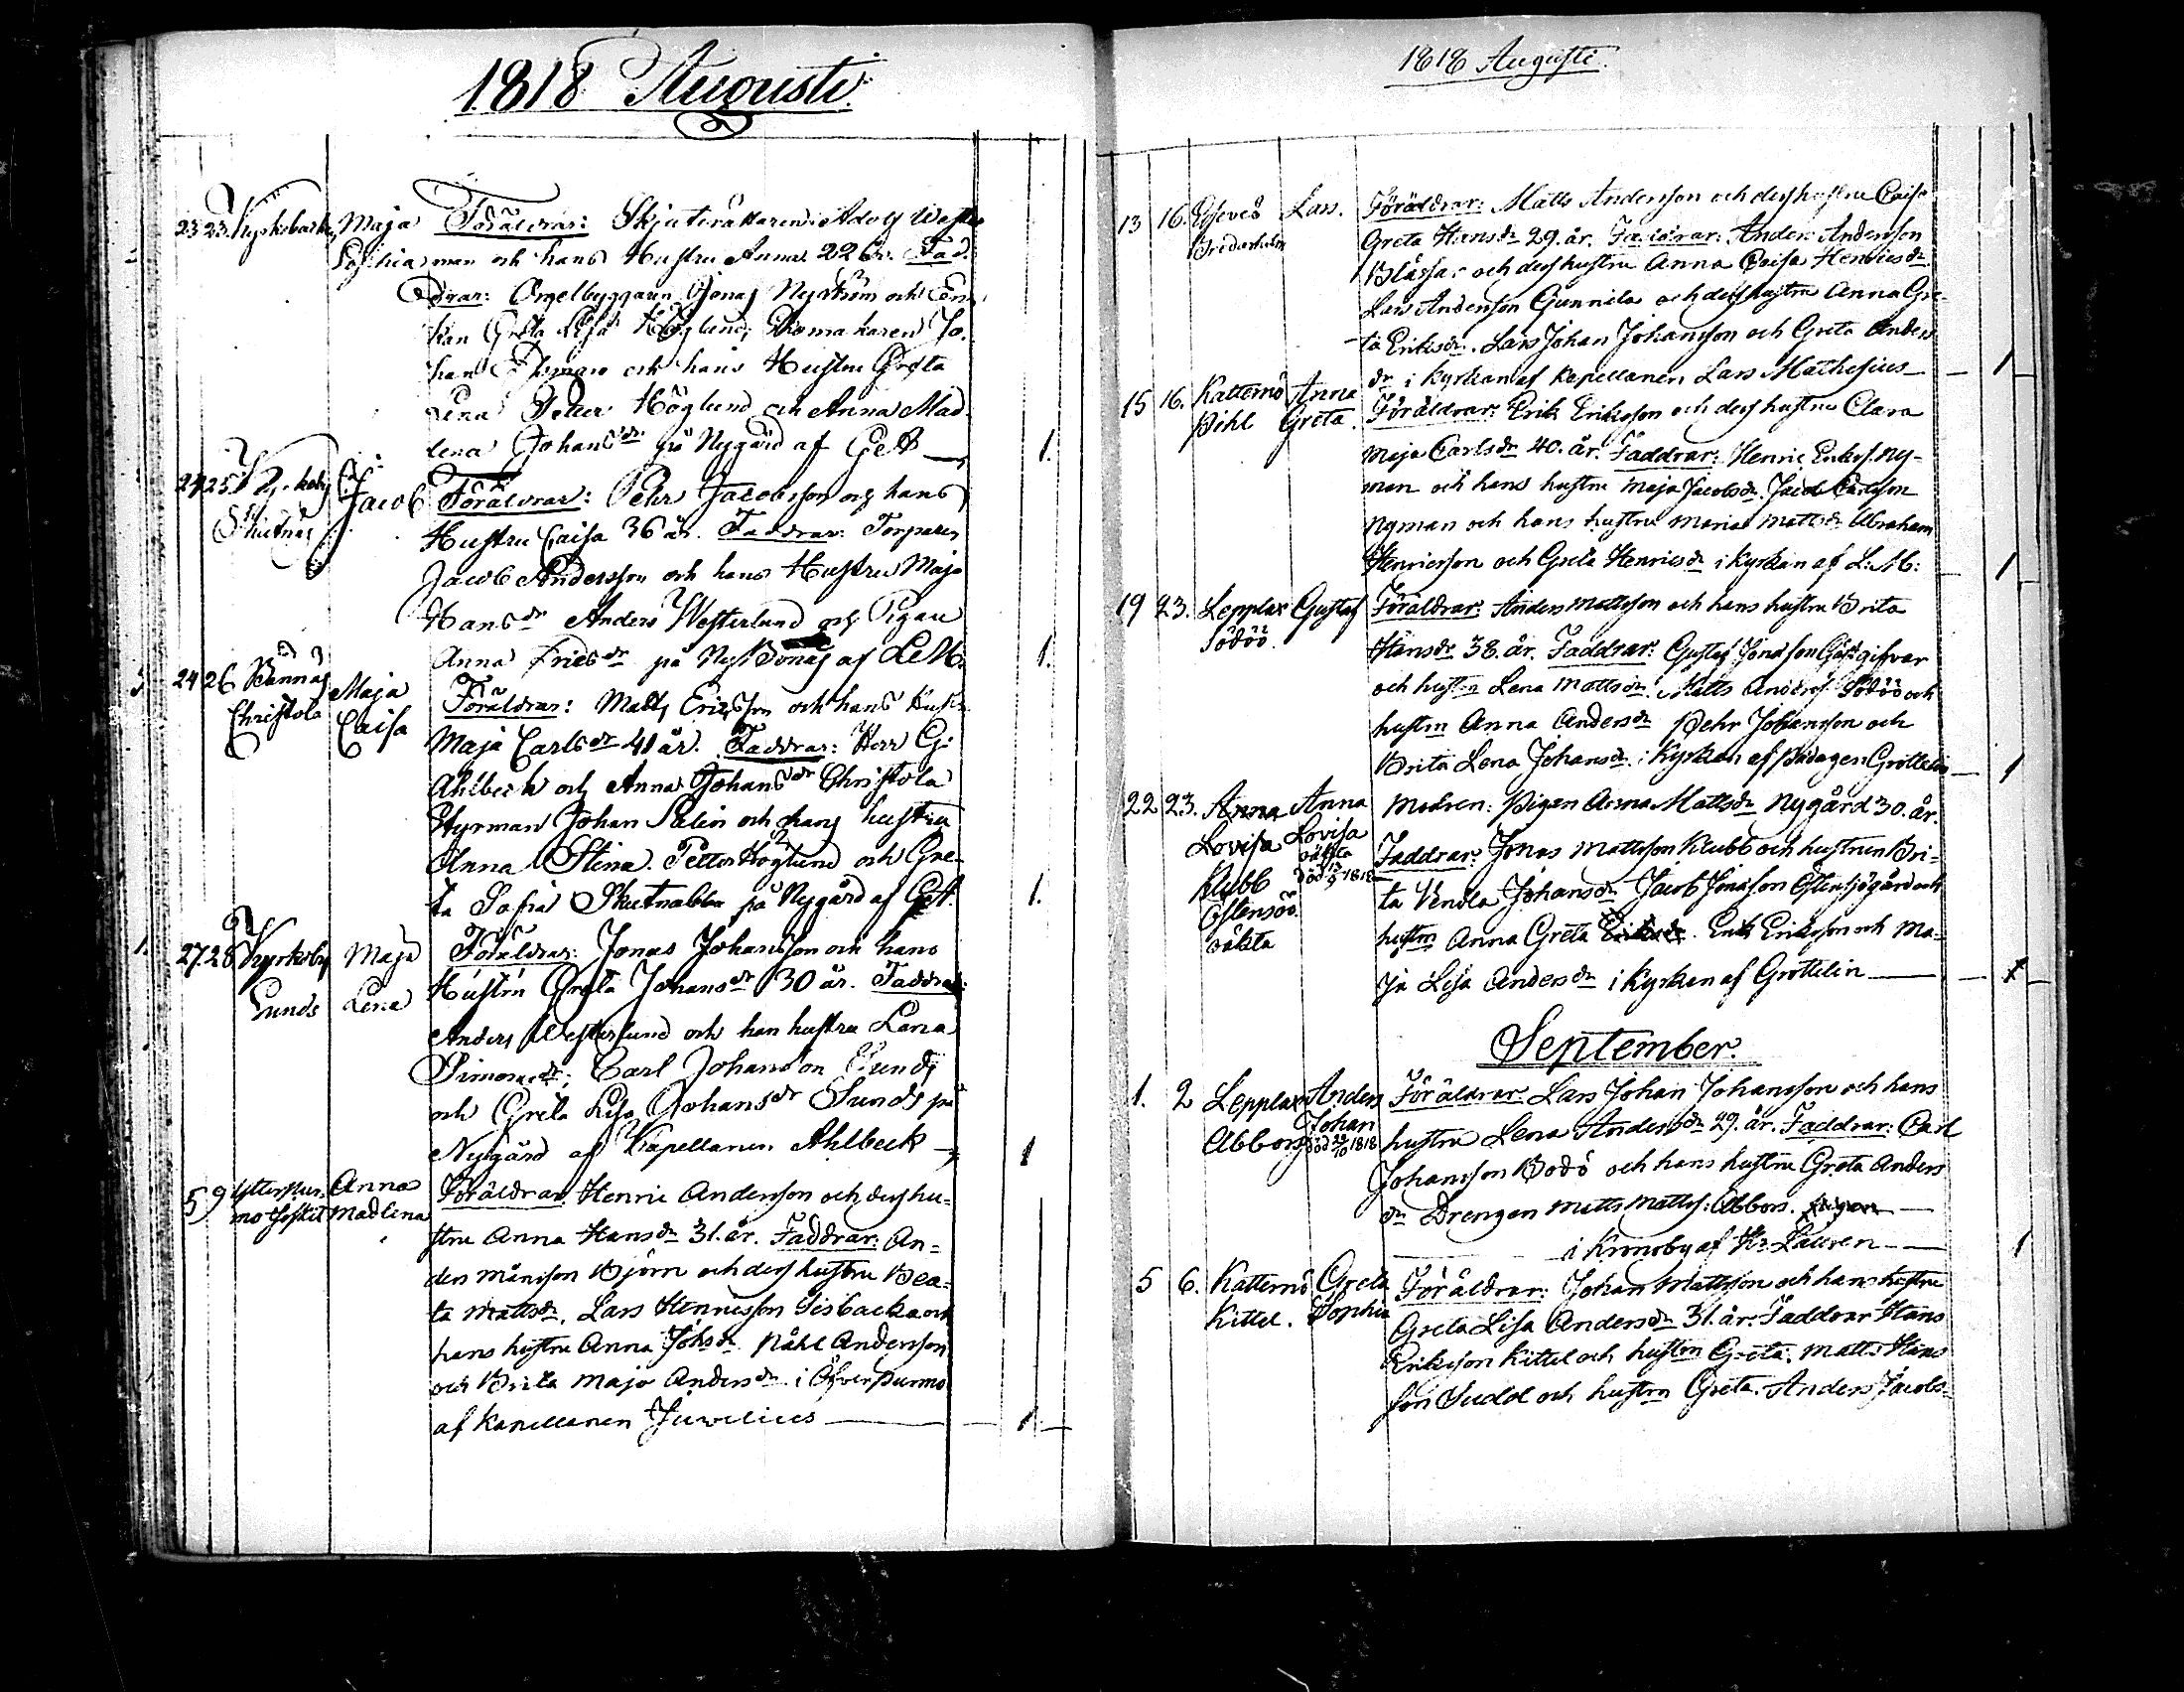 1818 Augusti.
23 23. Kyrkobacka Maja Föräldrar: Adolf Wester
Sophia man och hans Hustru Anna 22 år. Fad-
drar: Orgelbyggaren Jonas Nyström och
Greta Lisa Höglund, Jo-
han och hans Hustru Greta
Lena Petter Höglund och Anna Mad-
lena Johansdr på Nygård af
1.
24 25 Kyrkoby Jacob Föräldrar: Pehr Jacobsson och hans
Skutnäs Hustru Caisa 36 år. Faddrar: Torparen
Jacob Andersson och hans Hustru Maja
Hansdr Anders Westerlund och Pigan
Anna på af
1.
24 26 Bännäs Maja Föräldrar: Matts Ericsson och hans Hustru
Christola Caisa Maja Carlsdr 41 år. Faddrar: Herr G:
Ahlbeck och Anna Johansdr Christola
Styrman Johan och hans hustru
Anna Stina. Petter Höglund och Gre-
ta Sofia Skutnabba på Nygård af
1.
1. 27. 28 Kyrkoby Maja Föräldrar: Jonas Johansson och hans
Sunds Lena Hustru Greta Johansdr 30 år. Faddrar:
Anders Westerlund och han hustru Lena
Simonsdr; Carl Johansson Sunds
och Greta Lisa Johansdr Sunds på
Nygård af Kapellanen Ahlbeck
1
5 9 Ytterpur- Anna Föräldrar: Henric Andersson och dess hu-
mo Madlena
stru Anna Hansdr 31. år. Faddrar: An-
ders Månsson Björn och dess hustru Bea-
ta Mattsdr. Lars Henricsson Sisbacka och
hans hustru Anna Johsdr. Påhl Andersson
och Brita Maja Andersdr i Öfverpurmo
af Kapellanen Juvelius
1
1818 Augusti.
13 16. Esseveö Lars. Föräldrar: Matts Andersson och dess hustru Caisa
Brederholm Greta Hansdr 29. år. Faddrar: Anders Andersson
Blåssar och dess hustru Anna Caisa Henricsdr
Lars Andersson Gunnila och dess hustru Anna Gre-
ta Eriksdr. Lars Johan Johansson och Greta Anders
dr i Kyrkan af Kapellanen Lars Mathesius
1
15 16. Katternö Anna Föräldrar: Erik Eriksson och dess hustru Clara
Pihl Greta.
Maja Carlsdr 40. år. Faddrar: Henric Erikss. Ny-
man och hans hustru Maja Jacobsdr. Jacob Carlsson
Nyman och hans hustru Maria Mattsdr. Abraham
Henricsson och Greta Henricsdr i Kyrkan af L: M:
1
19 23. Lepplax Gustaf Föräldrar: Anders Mattsson och hans hustru Brita
Södöö. Hansdr 38. år. Faddrar: Gustaf Jonasson Gästgifvar
och hustru Lena Mattsdr. Matts Anderss. Södöö och
hustru Anna Andersdr Pehr Johansson och
Brita Lena Johansdr. i Kyrkan af Pädagogen Grottelin
1
22 23. Anna Anna Modren: Pigan Anna Mattsdr Nygård 30. år.
Lovisa Lovisa
oäkta
död 12/9 1818
Klubb Faddrar: Jonas Mattsson Klubb och hustrun Bri-
Östensöö ta Vendla Johansdr Jacob Jonasson Östensjögård och
oäkta hustru Anna Greta Eriksdr. Erik Eriksson och Ma-
ja Lisa Andersdr i Kyrkan af Grottelin
1
September.
1. 2 Lepplax Anders Föräldrar. Lars Johan Johansson och hans
Abbors Johan
död 29/10 1818
hustru Lena Andersdr 29. år. Faddrar: Carl
Johansson Bodö och hans hustru Greta Anders
dr Drengen Matts Mattss: Abbors.
i Kronoby af Hr. Lauren
1
5 6. Katternö Greta Föräldrar: Johan Mattsson och hans hustru
Kittel. Sophia Greta Lisa Andersdr 31. år. Faddrar Hans
Eriksson Kittel och hustru Greta. Matts Hans
son Sudd och hustru Greta. Anders Jacobs-